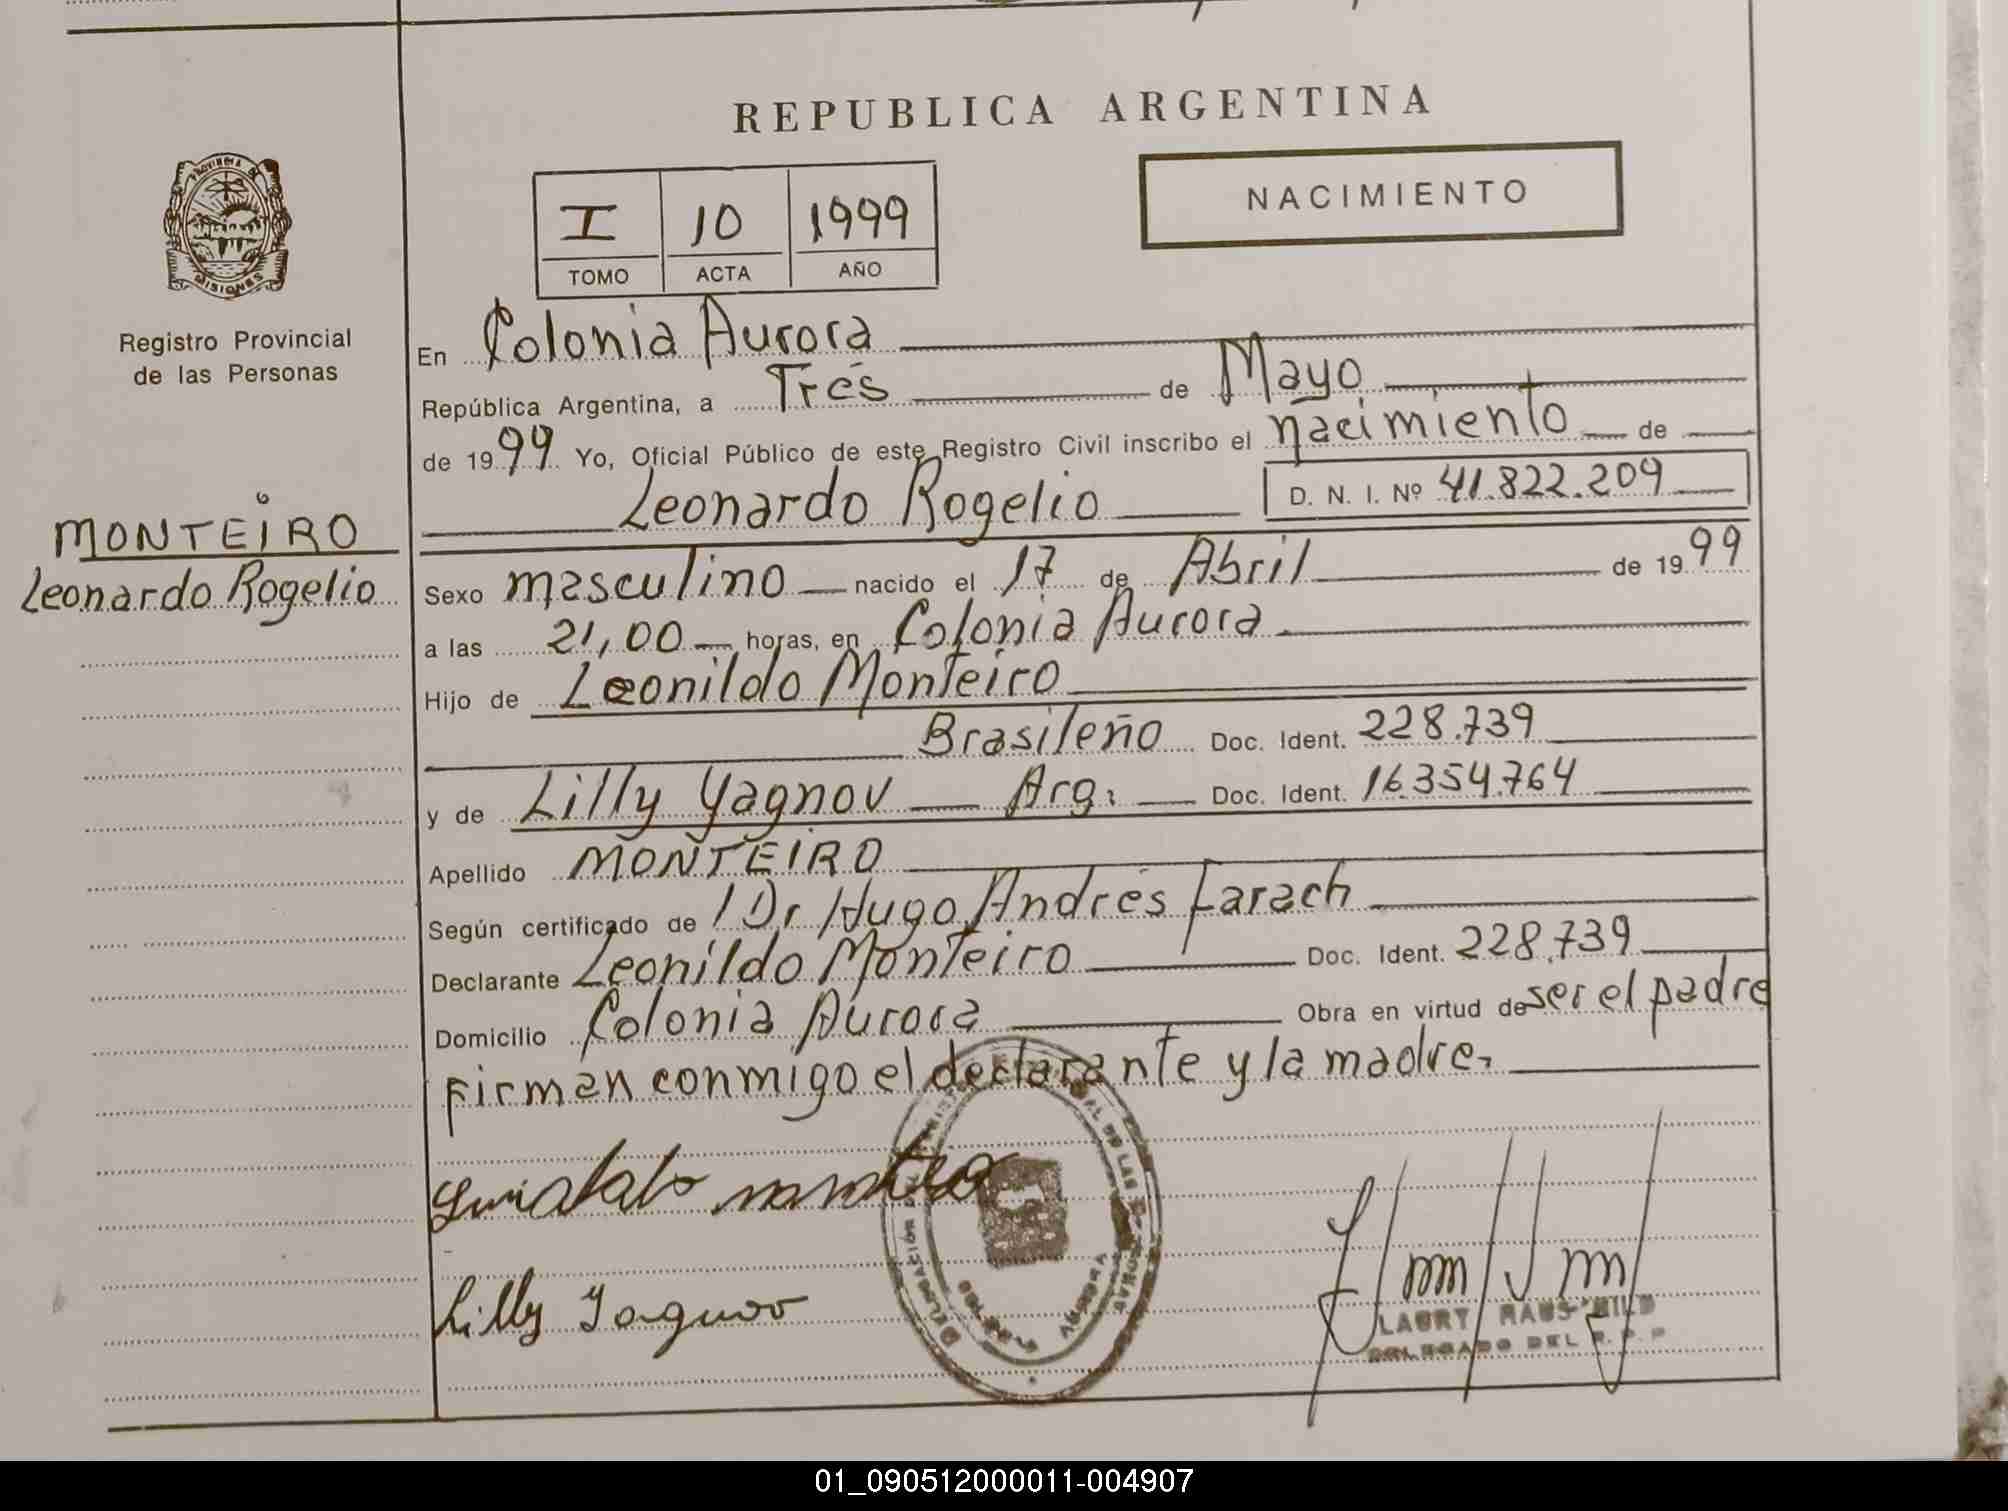 REPUBLICA ARGENTINA
PROVINCIA DE MISIONES
Registro Provincial
de las Personas
I 10 1999
TOMO ACTA AÑO
NACIMIENTO
En Colonia Aurora
República Argentina, a Tres de Mayo
de 1999 Yo, Oficial Público de este Registro Civil inscribo el nacimiento de
Leonardo Rogelio D. N. I. Nº 41.822.209
MONTEIRO
Leonardo Rogelio
Sexo masculino nacido el 17 de Abril de 1999
a las 21,00 horas, en Colonia Aurora
Hijo de Leonildo Monteiro
Brasileño Doc. Ident. 228.739
y de Lilly Yagnov Arg. Doc. Ident. 16.354.764
Apellido MONTEIRO
Según certificado de / Dr Hugo Andrés Farach
Declarante Leonildo Monteiro Doc. Ident. 228.739
Domicilio Colonia Aurora Obra en virtud de ser el padre
Firman conmigo el declarante y la madre.
Lilly Yagnov
LAURY
DELEGADO DEL R. P. P
01_090512000011-004907